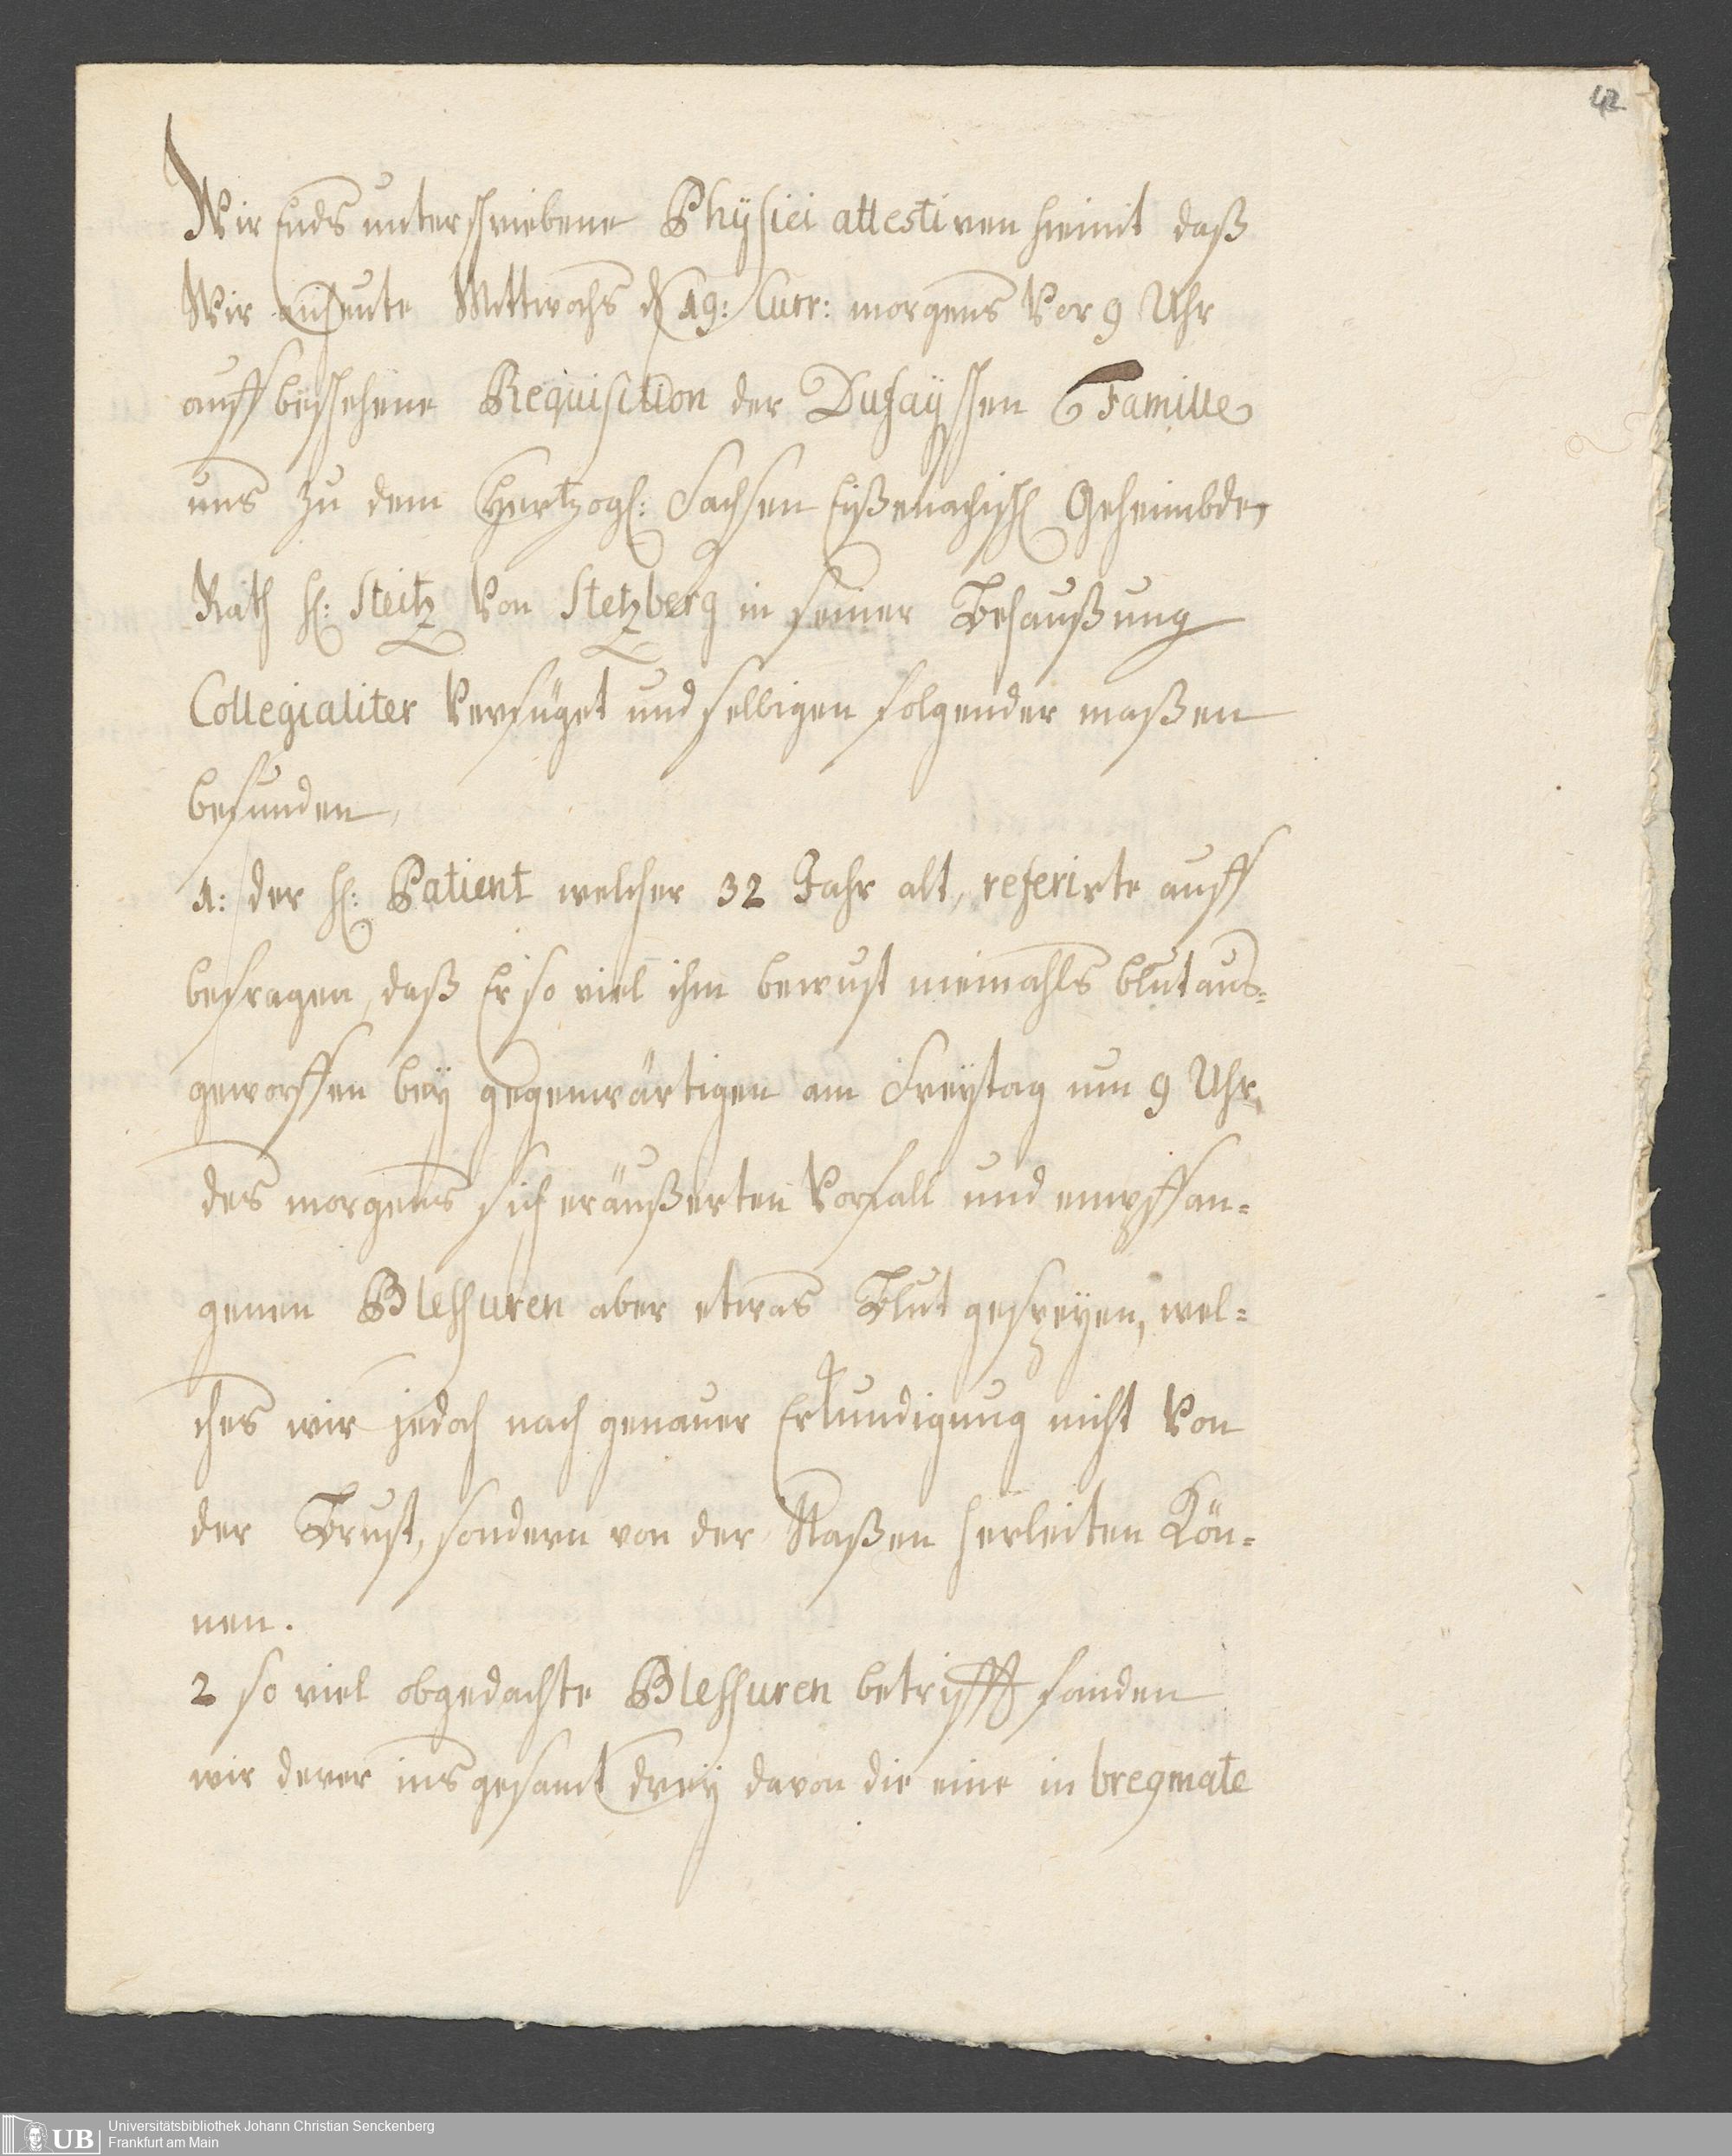 42
Wir Ends unterschriebene Physici attestiren hiemit daß
Wir anheute Mittwochs d 19: Curr: morgens Vor 9 Uhr
auff beschehene Requisition der Dufayschen Famille
uns zu dem Hertzogl: Sachsen Eißenachisch Geheimbde,
Rath H: Steitz Von Stetzberg in seiner Behaußung
Collegialiter Verfüget und selbigen folgender maßen
befunden,
1: der H: Patient welcher 32 Jahr alt, referirte auff
befragen, daß Er so viel ihm bewust niemahls blut aus=
geworffen bey gegenwärtigen am Freytag um 9 Uhr,
des morgens sich eräußerten Vorfall und empffan=
genen Blessuren aber etwas Blut gespeyen, wel=
ches wir jedoch nach genauer Erkundigung nicht Von
der Brust, sondern von der Naßen herleiten Kön=
nen.
2 so viel obgedachte Blessuren betrifft fanden
wir derer ins gesamt drey davon die eine in bregmate
UB
Universitätsbibliothek Johann Christian Senckenberg
Frankfurt am Main